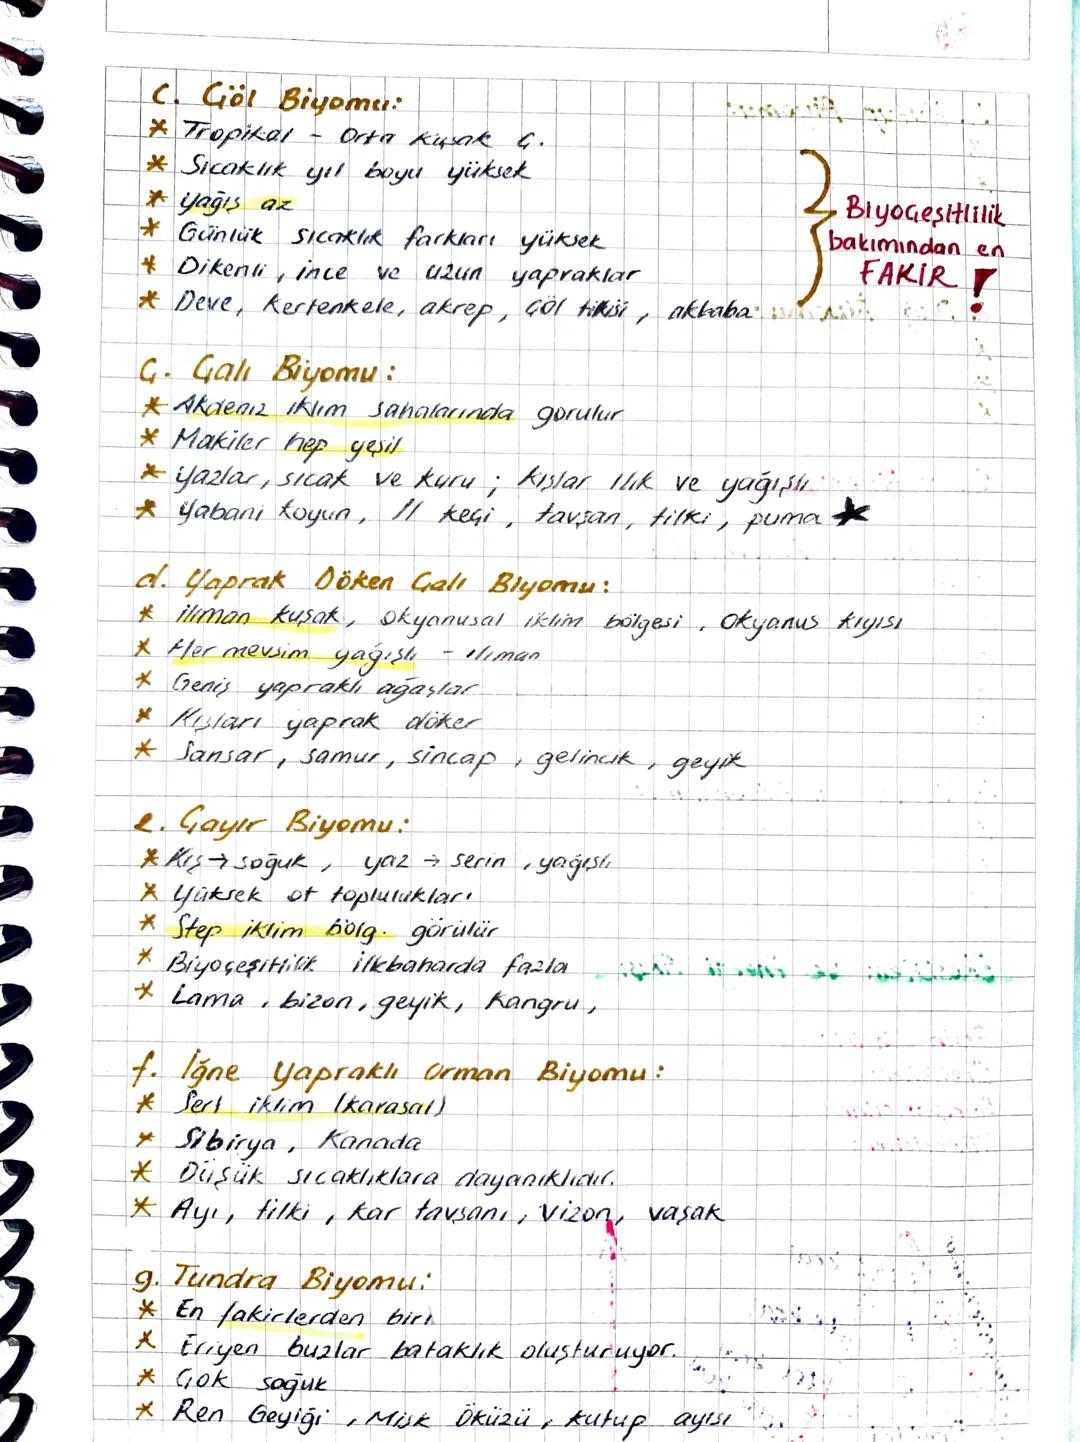 c. Çöl Biyomu:
* Tropikal - Orta Kuşak Ç.
* Sıcaklık yıl boyu yüksek
* yağış az
* Günlük sıcaklık farkları yüksek
* Dikenli, ince ve uzun yapraklar
* Deve, Kertenkele, akrep, çöl tilkisi, akbaba
Biyoçeşitlilik
bakımından en
FAKİR !
Ç. Çalı Biyomu:
* Akdeniz iklim sahalarında görülür
* Makiler hep yeşil
* Yazlar, sıcak ve kuru; kışlar ılık ve yağışlı
* Yabani koyun, // keçi, tavşan, tilki, puma *
d. Yaprak Döken Çalı Biyomu:
* ılıman kuşak, okyanusal iklim bölgesi, Okyanus kıyısı
* Her mevsim yağışlı - ılıman
* Geniş yapraklı ağaşlar
* Kışları yaprak döker
* Sansar, samur, sincap, gelincik, geyik
e. Çayır Biyomu:
* Kış → soğuk, yaz → serin, yağışlı
* Yüksek ot toplulukları
* Step iklim bölg. görülür
* Biyoçeşitlilik ilkbaharda fazla
* Lama, bizon, geyik, Kangru,
f. İğne Yapraklı Orman Biyomu:
* Sert iklim (karasal)
* Sibirya, Kanada
* Düşük sıcaklıklara dayanıklıdır.
* Ayı, tilki, kar tavşanı, vizon, vaşak
g. Tundra Biyomu:
* En fakirlerden biri
* Eriyen buzlar bataklık oluşturuyor.
* Çok soğuk
* Ren Geyiği, Misk Öküzü, kutup ayısı